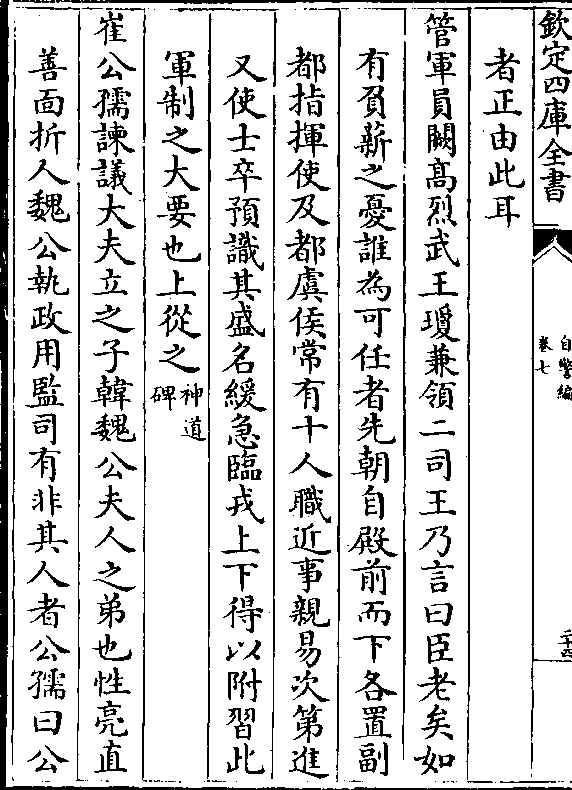 欽定四庫全書
自警編
卷七
二十四
者正由此耳
管軍員闕髙烈武王瓊兼領二司王乃言曰臣老矣如
有負薪之憂誰為可任者先朝自殿前而下各置副
都指揮使及都虞侯常有十人職近事親易次第進
又使士卒預識其盛名緩急臨戎上下得以附習此
軍制之大要也上從之神道碑
崔公孺諫議大夫立之子韓魏公夫人之弟也性亮直
善面折人魏公執政用監司有非其人者公孺曰公